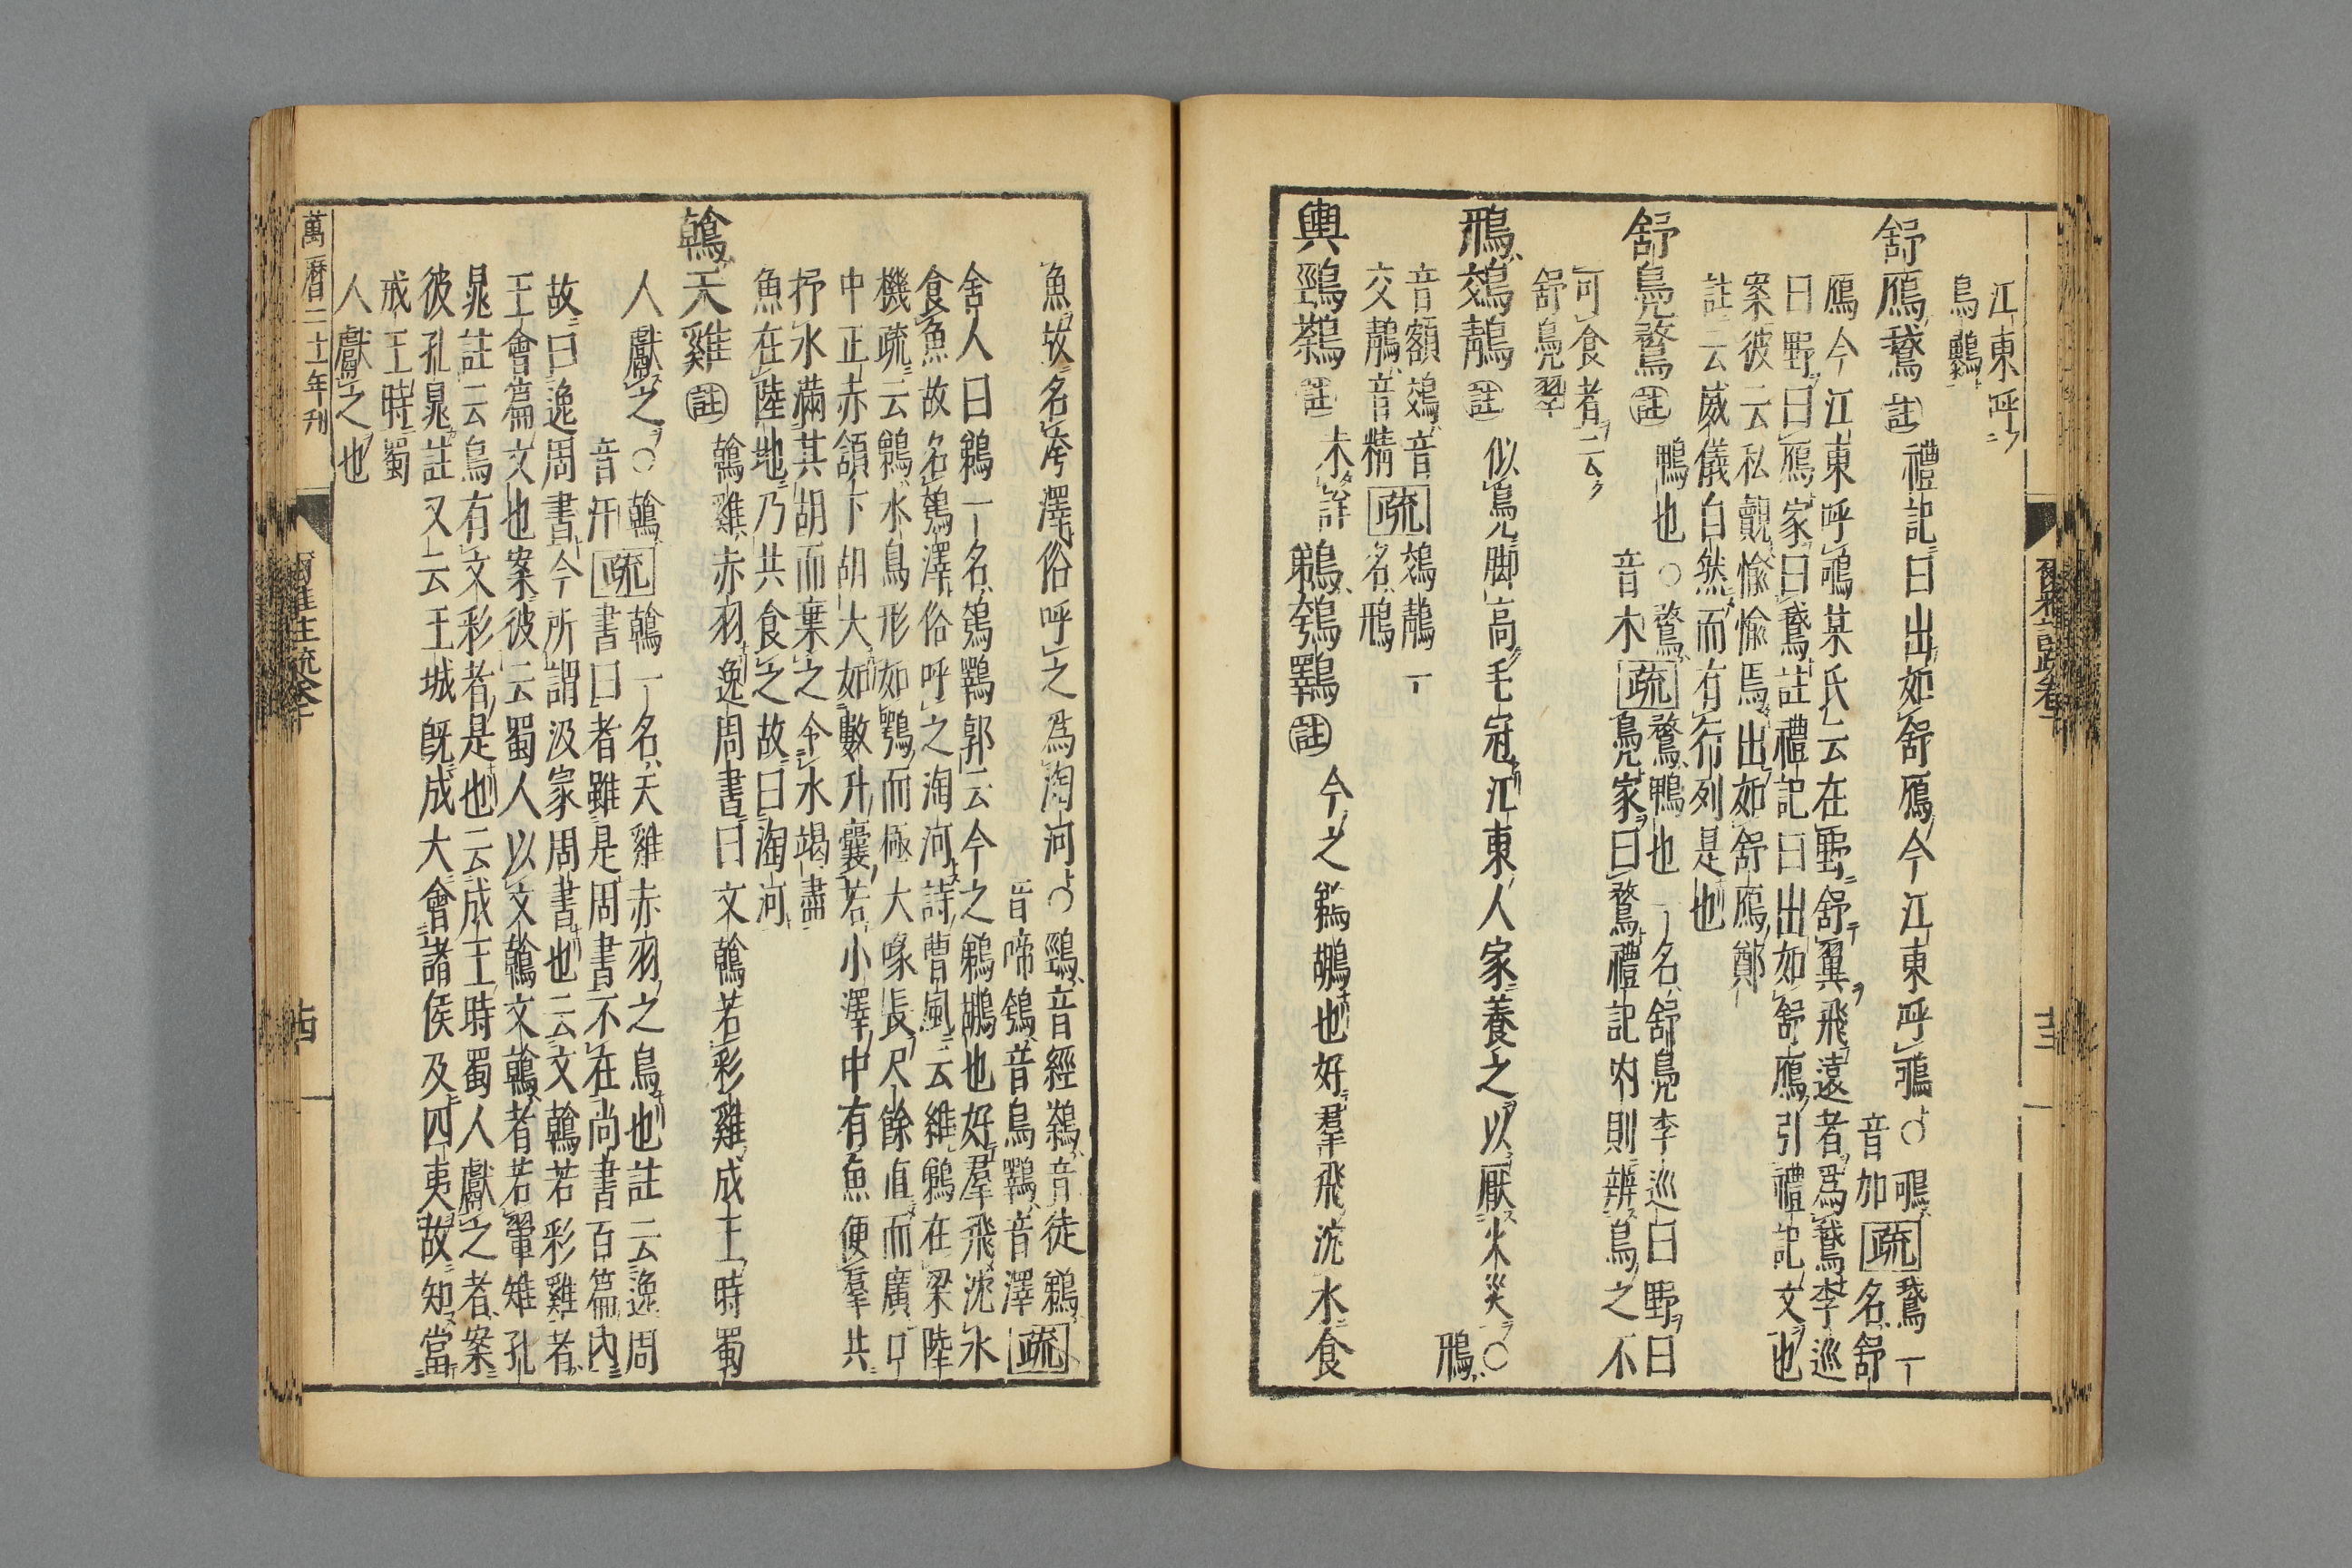 江東呼
烏鸔
舒鴈鵞 註 禮記曰出如舒鴈今江東呼鴚○鴚
音加 疏 鵞一名舒
鴈今江東呼鴚某氏云在野舒翼飛遠者爲鵞李巡
曰野曰鴈家曰鵞註禮記曰出如舒鴈引禮記文也
案彼云私覿愉愉焉出如舒鴈鄭
註云威儀自然而有行列是也
舒鳧鶩 註 鴨也○鶩
音木 疏 鶩鴨也一名舒鳧李巡曰野曰
鳧家曰鶩禮記內則辨鳥之不
可食者云
舒鳧翠
鳽鵁鶄 註 似鳧脚高毛冠江東人家養之以厭火災○
鳽
音額鵁音
交鶄音精 疏 鵁鶄一
名鳽
輿鵛鷋 註 未詳 鵜鴮鸅 註 今之鵜鶘也好羣飛沈水食
魚故名洿澤俗呼之爲淘河○鵛音經鷋音徒鵜
音啼鴮音烏鸅音澤 疏
舍人曰鵜一名鴮鸅郭云今之鵜鶘也好羣飛沈水
食魚故名鴮澤俗呼之淘河詩曹風云維鵜在梁陸
機疏云鵜水鳥形如鶚而極大喙長尺餘直而廣口
中正赤頷下胡大如數升囊若小澤中有魚便羣共
抒水滿其胡而棄之令水竭盡
魚在陸地乃共食之故曰淘河
鶾天雞 註 鶾雞赤羽逸周書曰文鶾若彩雞成王時蜀
人獻之○鶾
音汗 疏 鶾一名天雞赤羽之鳥也註云逸周
書曰者雖是周書不在尚書百篇內
故曰逸周書今所謂汲冢周書也云文鶾若彩雞者
王會篇文也案彼云蜀人以文鶾文鶾者若翬雉孔
晁註云鳥有文彩者是也云成王時蜀人獻之者案
彼孔晁註又云王城旣成大會諸侯及四夷故知當
成王時蜀
人獻之也
萬曆二十一年刊
爾雅註疏卷十
十四